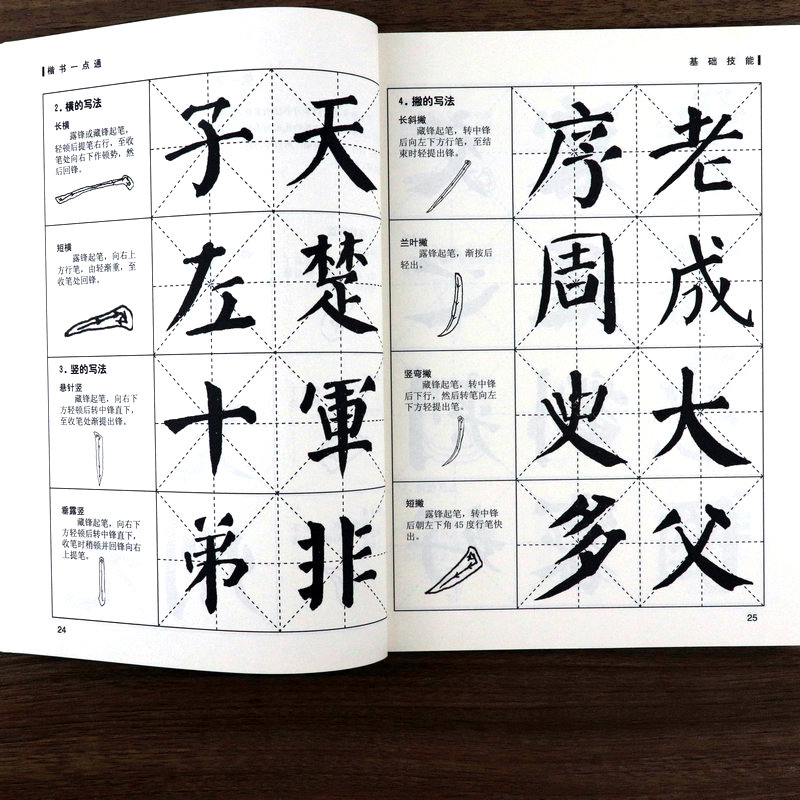 楷书一点通
2.横的写法
长横
露锋或藏锋起笔，
轻顿后提笔右行，至收
笔处向右下作顿势，然
后回锋。
子 天
短横
露锋起笔，向右上
方行笔，由轻渐重，至
收笔处回锋。
左 楚
3.竖的写法
悬针竖
藏锋起笔，向右下
方轻顿后转中锋直下，
至收笔处渐提出锋。
十 軍
垂露竖
藏锋起笔，向右下
方轻顿后转中锋直下，
收笔时稍顿并回锋向右
上提笔。
弟 非
24
基础技能
4.撇的写法
长斜撇
藏锋起笔，转中锋
后向左下方行笔，至结
束时轻提出锋。
序 老
兰叶撇
露锋起笔，渐按后
轻出。
周 成
竖弯撇
藏锋起笔，转中锋
后下行，然后转笔向左
下方轻提出笔。
史 大
短撇
露锋起笔，转中锋
后朝左下角45度行笔快
出。
多 父
25